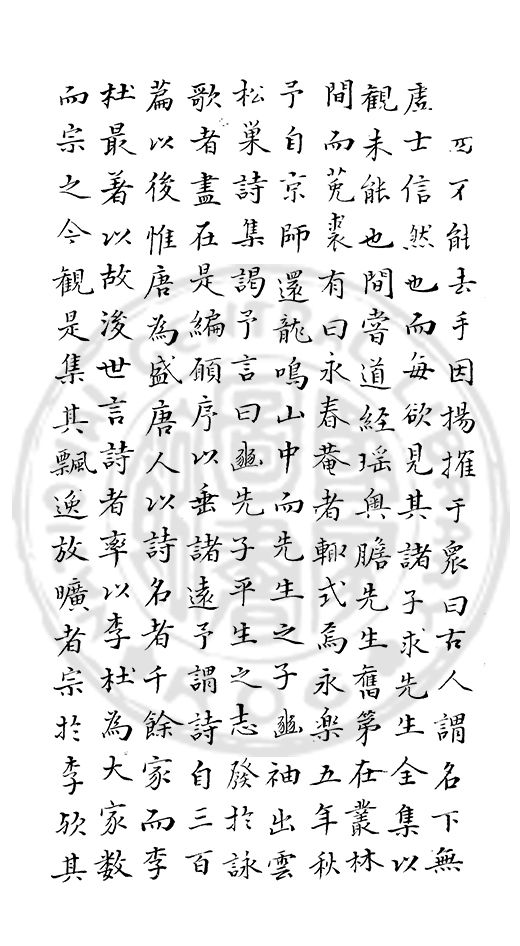 不能去手因揚搉于衆曰古人謂名下無
虛士信然也而每欲見其諸子求先生全集以
觀未能也間嘗道經瑶奥膽先生舊第在叢林
間而菟裘有曰永春菴者輙式焉永樂五年秋
予自京師還龍鳴山中而先生之子豳袖出雲
松巢詩集謁予言曰豳先子平生之志發於詠
歌者盡在是編願序以垂諸遠予謂詩自三百
篇以後惟唐為盛唐人以詩名者千餘家而李
杜最著以故後世言詩者率以李杜為大家数
而宗之今觀是集其飄逸放曠者宗於李欤其